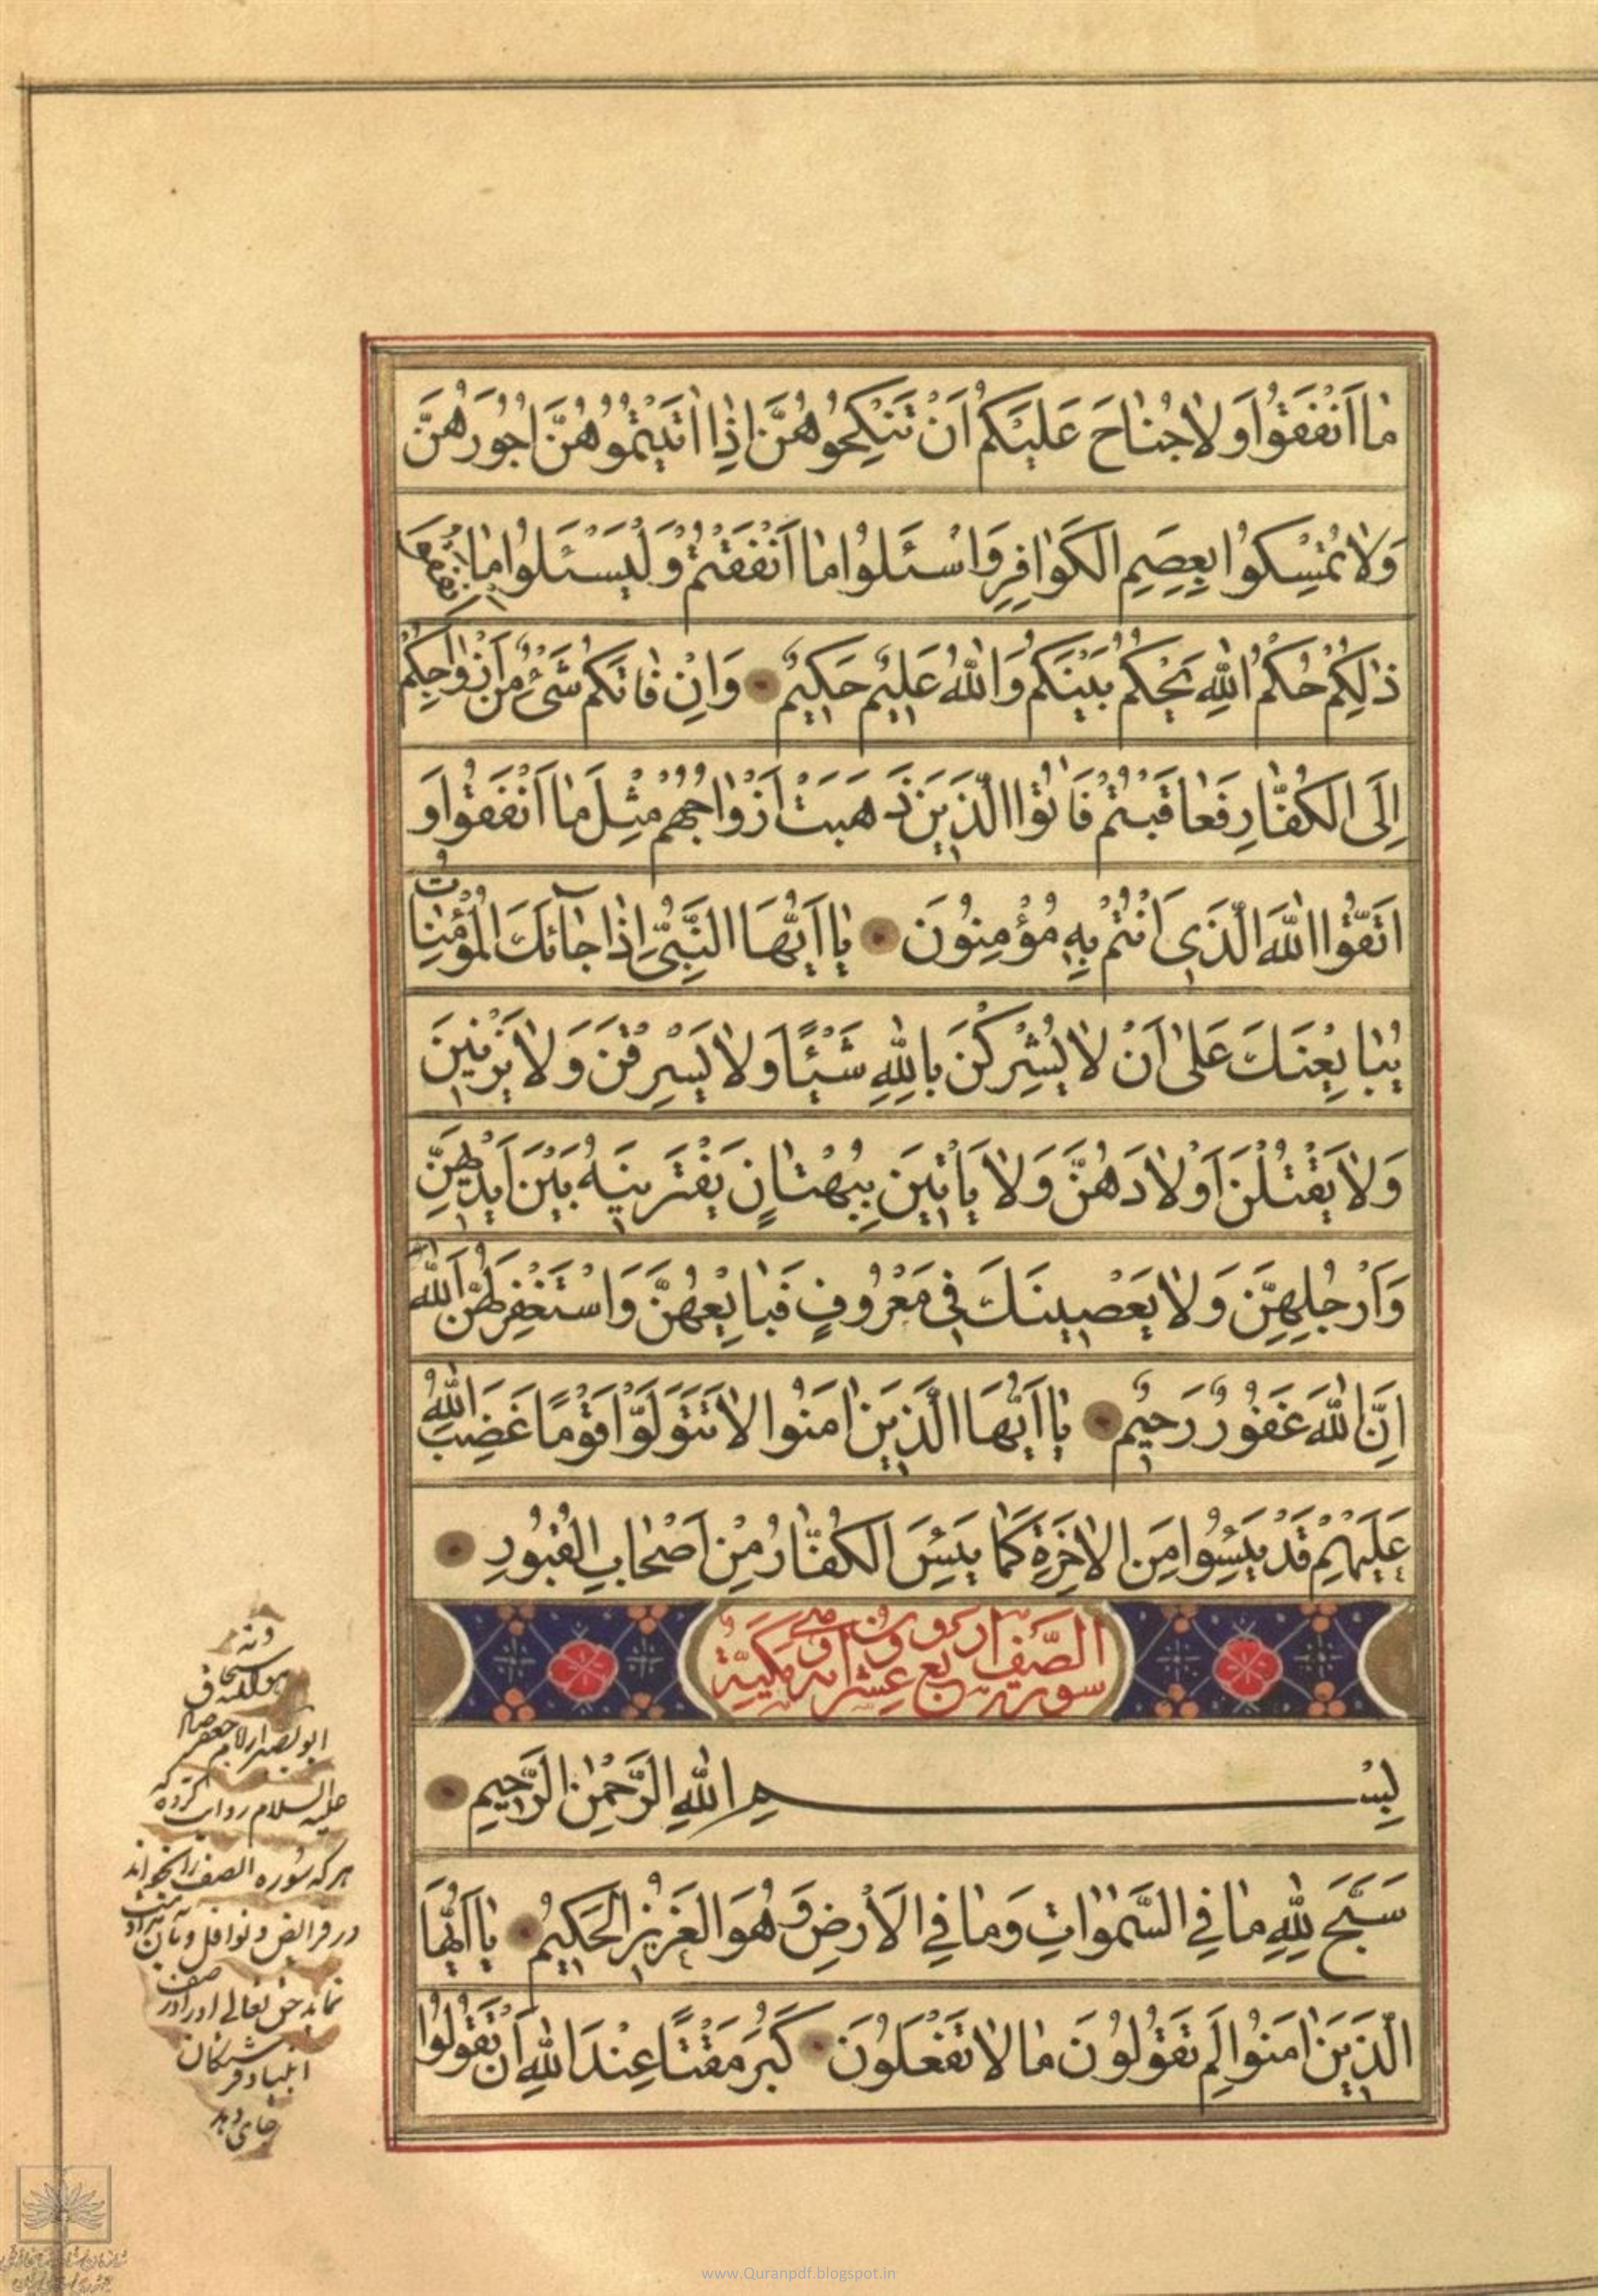 مٰا اَنْفَقُوا وَ لٰا جُنٰاحَ عَلَيْكُمْ اَنْ تَنْكِحُوهُنَّ اِذٰا اٰتَيْتُمُوهُنَّ اُجُورَهُنَّ
وَلٰا تُمْسِكُوا بِعِصَمِ الْكَوٰافِرِ وَاسْئَلُوا مٰا اَنْفَقْتُمْ وَلْيَسْئَلُوا مٰا اَنْفَقُوا
ذٰلِكُمْ حُكْمُ اللّٰهِ يَحْكُمُ بَيْنَكُمْ وَاللّٰهُ عَلِيمٌ حَكِيمٌ وَاِنْ فٰاتَكُمْ شَىْءٌ مِنْ اَزْوٰاجِكُمْ
اِلَى الْكُفّٰارِ فَعٰاقَبْتُمْ فَاٰتُوا الَّذِينَ ذَهَبَتْ اَزْوٰاجُهُمْ مِثْلَ مٰا اَنْفَقُوا وَ
اتَّقُوا اللّٰهَ الَّذِى اَنْتُمْ بِهِ مُؤْمِنُونَ يٰا اَيُّهَا النَّبِىُّ اِذٰا جٰآئَكَ الْمُؤْمِنٰاتُ
يُبٰايِعْنَكَ عَلىٰ اَنْ لٰا يُشْرِكْنَ بِاللّٰهِ شَيْئًا وَلٰا يَسْرِقْنَ وَلٰا يَزْنِينَ
وَلٰا يَقْتُلْنَ اَوْلٰادَهُنَّ وَلٰا يَاْتِينَ بِبُهْتٰانٍ يَفْتَرِينَهُ بَيْنَ اَيْدِيهِنَّ
وَاَرْجُلِهِنَّ وَلٰا يَعْصِينَكَ فِى مَعْرُوفٍ فَبٰايِعْهُنَّ وَاسْتَغْفِرْ لَهُنَّ اللّٰهَ
اِنَّ اللّٰهَ غَفُورٌ رَحِيمٌ يٰا اَيُّهَا الَّذِينَ اٰمَنُوا لٰا تَتَوَلَّوْا قَوْمًا غَضِبَ اللّٰهُ
عَلَيْهِمْ قَدْ يَئِسُوا مِنَ الْاٰخِرَةِ كَمٰا يَئِسَ الْكُفّٰارُ مِنْ اَصْحٰابِ الْقُبُورِ
سورة الصَّف اربع عشر اية مَكيَّة
بِسْمِ اللّٰهِ الرَّحْمٰنِ الرَّحِيمِ
سَبَّحَ لِلّٰهِ مٰا فِي السَّمٰوٰاتِ وَمٰا فِي الْاَرْضِ وَهُوَ الْعَزِيزُ الْحَكِيمُ يٰا اَيُّهَا
الَّذِينَ اٰمَنُوا لِمَ تَقُولُونَ مٰا لٰا تَفْعَلُونَ كَبُرَ مَقْتًا عِنْدَ اللّٰهِ اَنْ تَقُولُوا
ابو بصير از امام جعفر صادق
عليه السلام روايت كرده كه
هر كه سوره الصف را بخواند
در فرائض و نوافل
نمايد حق تعالى او را در صف
انبيا و فرشتكان
جاى دهد
www.Quranpdf.blogspot.in